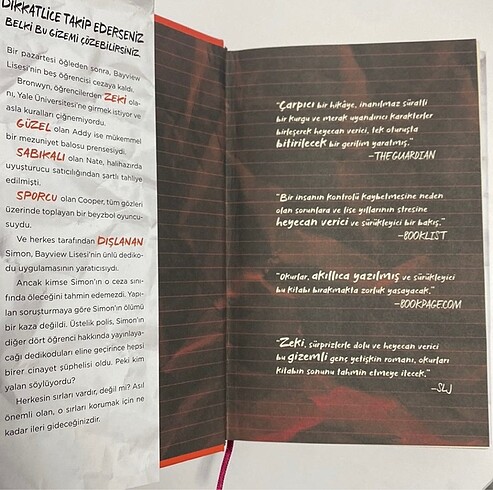 DİKKATLİCE TAKİP EDERSENİZ
BELKİ BU GİZEMİ ÇÖZEBİLİRSİNİZ.
Bir pazartesi öğleden sonra, Bayview
Lisesi'nin beş öğrencisi cezaya kaldı.
Bronwyn, öğrencilerden ZEKİ ola-
nı, Yale Üniversitesi'ne girmek istiyor ve
asla kuralları çiğnemiyordu.
GÜZEL olan Addy ise mükemmel
bir mezuniyet balosu prensesiydi.
SABIKALI olan Nate, halihazırda
uyuşturucu satıcılığından şartlı tahliye
edilmişti.
SPORCU olan Cooper, tüm gözleri
üzerinde toplayan bir beyzbol oyuncu-
suydu.
Ve herkes tarafından DIŞLANAN
Simon, Bayview Lisesi'nin ünlü dediko-
du uygulamasının yaratıcısıydı.
Ancak kimse Simon'ın o ceza sını-
fında öleceğini tahmin edemezdi. Yapı-
lan soruşturmaya göre Simon'ın ölümü
bir kaza değildi. Üstelik polis, Simon'ın
diğer dört öğrenci hakkında yayınlaya-
cağı dedikoduları eline geçirince hepsi
birer cinayet şüphelisi oldu. Peki kim
yalan söylüyordu?
Herkesin sırları vardır, değil mi? Asıl
önemli olan, o sırları korumak için ne
kadar ileri gideceğinizdir.
"Çarpıcı bir hikâye, inanılmaz süratli
bir kurgu ve merak uyandırıcı karakterler
birleşerek heyecan verici, tek oturuşta
bitirilecek bir gerilim yaratmış."
-THE GUARDIAN
"Bir insanın kontrolü kaybetmesine neden
olan sorunlara ve lise yıllarının stresine
heyecan verici ve sürükleyici bir bakış."
-BOOKLIST
"Okurlar, akıllıca yazılmış ve sürükleyici
bu kitabı bırakmakta zorluk yaşayacak."
-BOOKPAGE.COM
"Zeki, sürprizlerle dolu ve heyecan verici
bu gizemli genç yetişkin romanı, okurları
kitabın sonunu tahmin etmeye itecek."
-SLJ